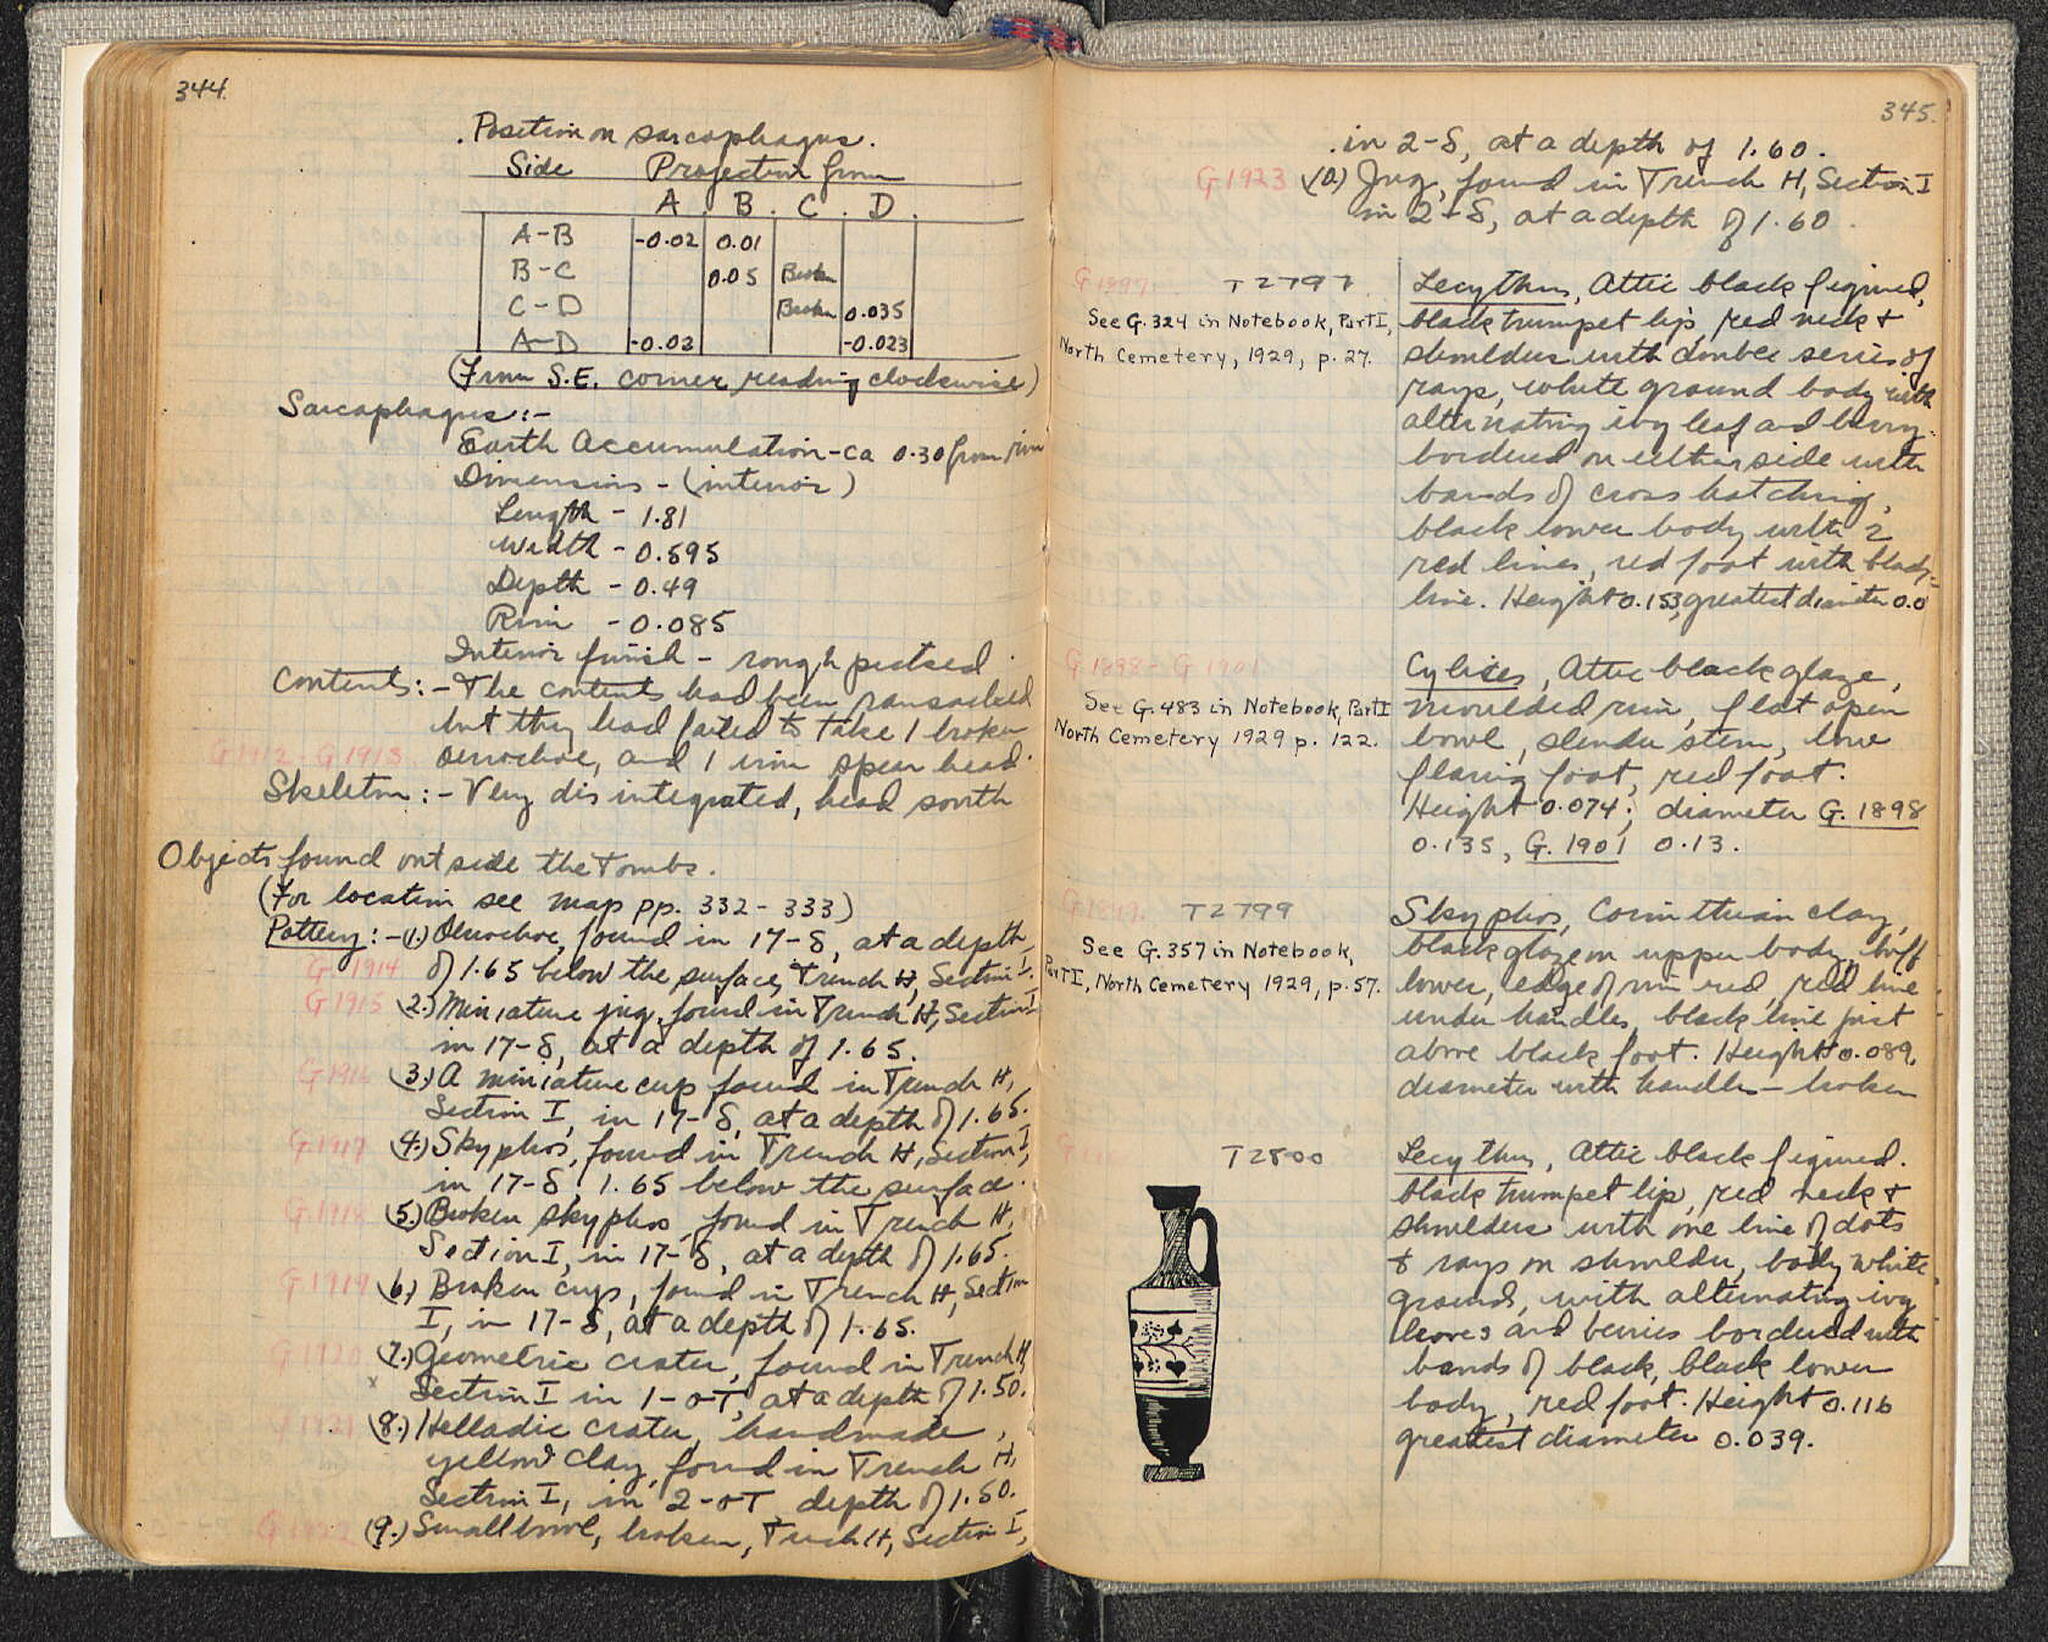 344.
Position on sarcophagus.
Side Projection from
A. B. C. D.
A-B -0.02 0.01
B-C 0.05 Broken
C-D Broken 0.035
A-D -0.02 -0.023
(From S.E. corner, reading clockwise)
Sarcophagus:-
Earth Accumulation-ca 0.30 from rim
Dimensions - (interior)
Length - 1.81
Width - 0.595
Depth - 0.49
Rim - 0.085
Interior finish - rough picked.
Contents:- The contents had been ransacked
but they had failed to take 1 broken
G 1912 - G 1913 oenochoe, and 1 iron spear head.
Skeleton:- Very disintegrated, head south
Objects found outside the Tombs.
(For location see map pp. 332-333)
Pottery:- (1.) Oenochoe, found in 17-δ, at a depth
G 1914 of 1.65 below the surface, Trench H, Section I.
G 1915 (2.) Miniature jug, found in Trench H, Section I
in 17-δ, at a depth of 1.65.
G 1916 (3.) A miniature cup found in Trench H,
Section I, in 17-δ, at a depth of 1.65.
G 1917 (4.) Skyphos, found in Trench H, Section I,
in 17-δ, 1.65 below the surface.
G 1918 (5.) Broken skyphos, found in Trench H,
Section I, in 17-δ, at a depth of 1.65.
G 1919 (6.) Broken cup, found in Trench H, Section
I, in 17-δ, at a depth of 1.65.
G 1920 (7.) Geometric crater, found in Trench H,
x Section I in 1-σT, at a depth of 1.50.
G 1921 (8.) Helladic crater, handmade,
yellow clay, found in Trench H,
Section I, in 2-σT depth of 1.50.
G 1922 (9.) Small bowl, broken, Trench H, Section I,
345.
in 2-S, at a depth of 1.60.
G 1923 (10.) Jug, found in Trench H, Section I
in 2-S, at a depth of 1.60.
G 1897. T 2797 Lecythus, Attic black figured,
See G. 324 in Notebook, Part I, black trumpet lip, red neck +
North Cemetery, 1929, p. 27. shoulder with double series of
rays, white ground body with
alternating ivy leaf and berry
bordered on either side with
bands of cross hatching,
black lower body with 2
red lines, red foot with black
line. Height 0.153, greatest diameter 0.0
G 1898 - G 1901 Cylices, Attic black glaze,
See G. 483 in Notebook, Part I moulded rim, flat open
North Cemetery 1929 p. 122. bowl, slender stem, low
flaring foot, red foot.
Height 0.074; diameter G. 1898
0.135, G. 1901 0.13.
T 2799 Skyphos, Corinthian clay,
See G. 357 in Notebook, black glaze on upper body, buff
Part I, North Cemetery 1929, p. 57. lower, edge of rim red, red line
under handles, black line just
above black foot. Height 0.089,
diameter with handles - broken
T 2800 Lecythus, Attic black figured.
black trumpet lip, red neck +
shoulder with one line of dots
+ rays on shoulder, body white
ground, with alternating ivy
leaves and berries bordered with
bands of black, black lower
body, red foot. Height 0.116
greatest diameter 0.039.